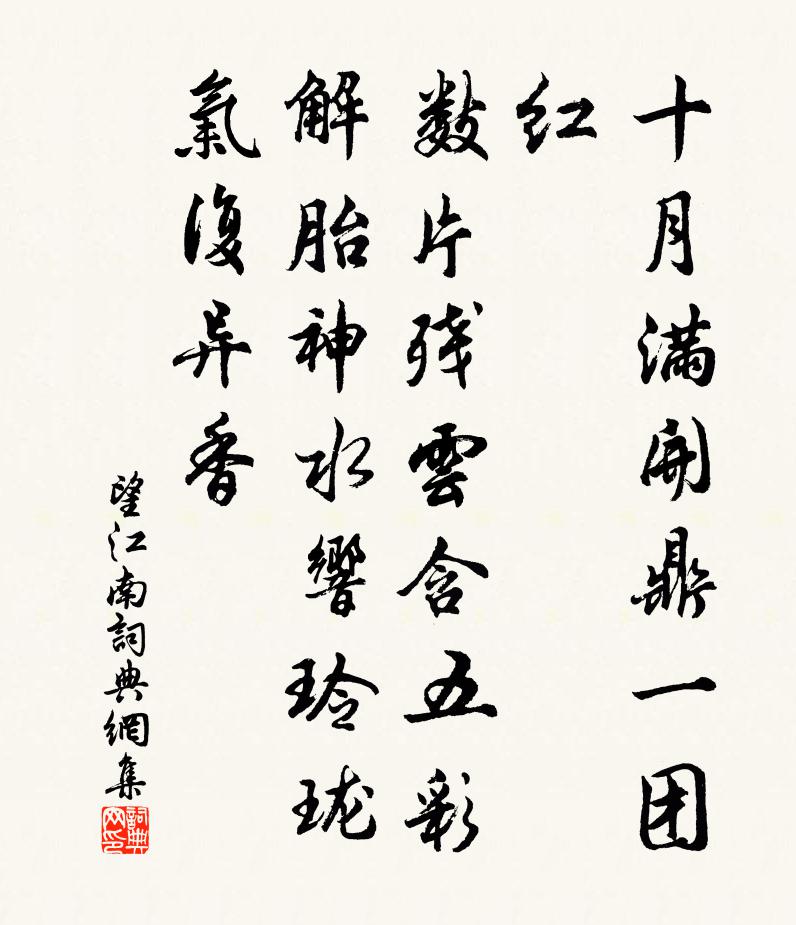 十月满開鼎一团
红
数片残雲含五彩
解胎神水響玲珑
氣復异香
望江南詞典網集
詞典
网印